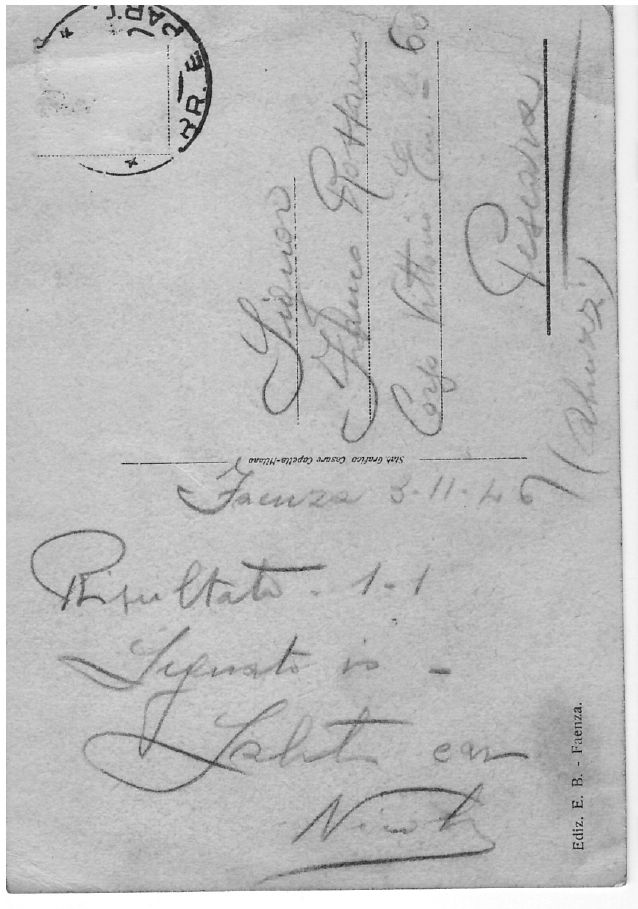 Faenza 3-11-46
Risultato - 1-1
Segnato io -
Saluti cari
Signor
Franco
Corso Vittorio Em. le 60
Pescara
(Abruzzi)
Stab. Grafico Cesare Capello-Milano
Ediz. E. B. - Faenza.
RR. E